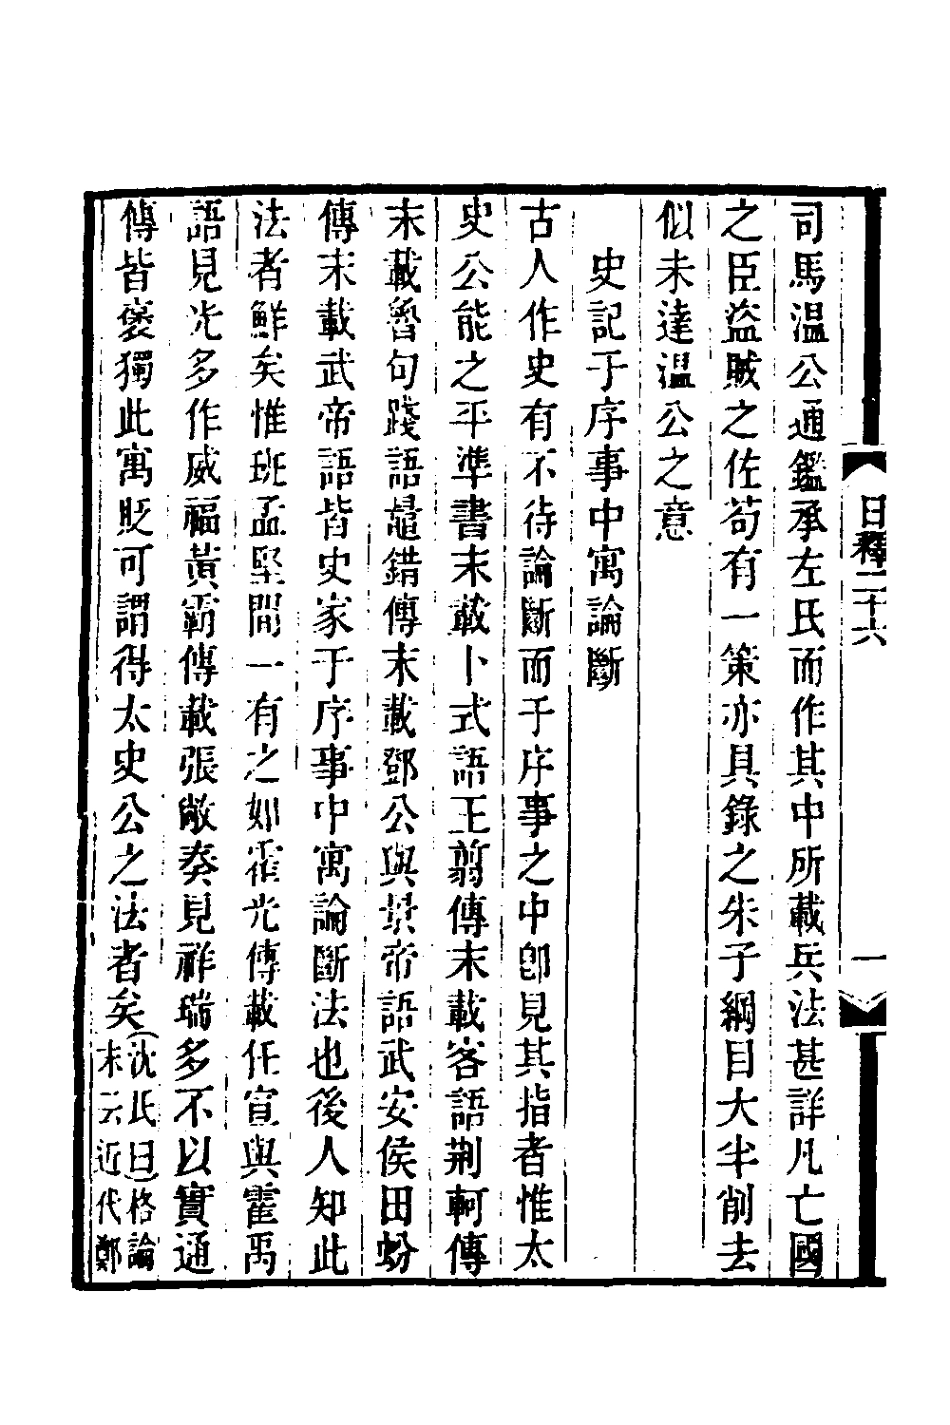 日釋二十六
一
司馬溫公通鑑承左氏而作其中所載兵法甚詳凡亡國
之臣盜賊之佐苟有一策亦具錄之朱子綱目大半削去
似未達溫公之意
史記于序事中寓論斷
古人作史有不待論斷而于序事之中卽見其指者惟太
史公能之平準書末載卜式語王翦傳末載客語荆軻傳
末載魯句踐語鼂錯傳末載鄧公與景帝語武安侯田蚡
傳末載武帝語皆史家于序事中寓論斷法也後人知此
法者鮮矣惟班孟堅間一有之如霍光傳載任宣與霍禹
語見光多作威福黃霸傳載張敞奏見祥瑞多不以實通
傳皆褒獨此寓貶可謂得太史公之法者矣
(沈氏曰)格論
末云近代鄭